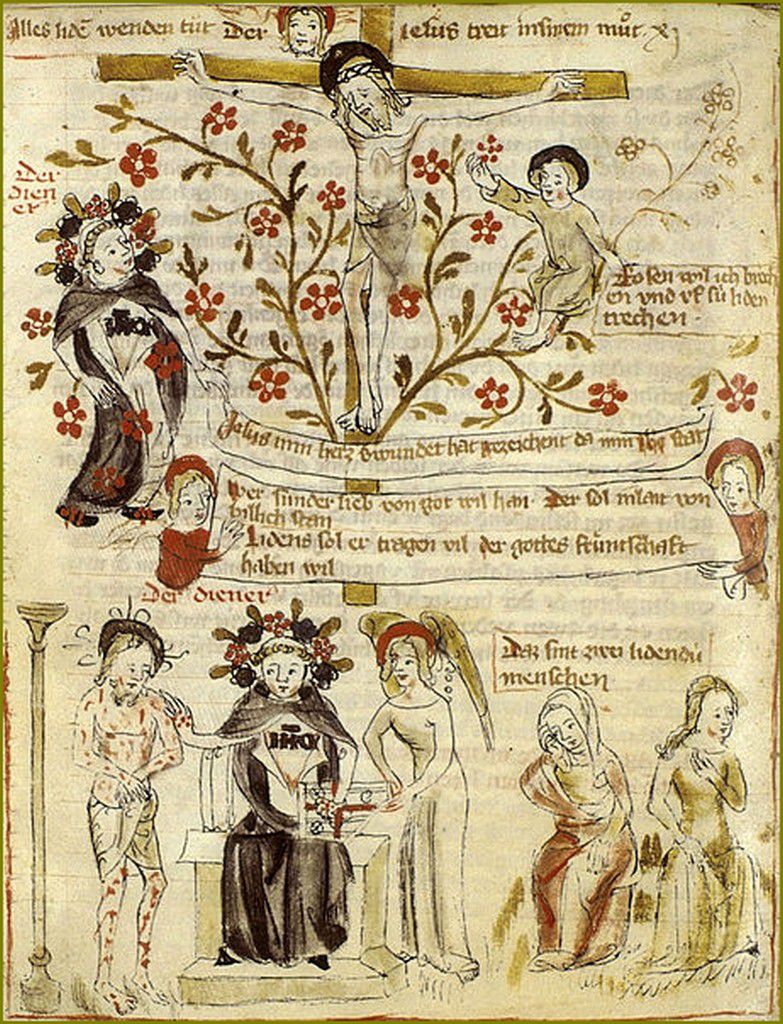 Alles lidē wenden tůt Der
iesus treit in sinem můt
Der
dien
er
Rosen wil ich brech
en vnd vf sú liden
trechen
Jesus min herz hat gezeichent da
Wer sunder lieb von got wil han Der sol von
billich stan
Lidens sol er tragen vil der gottes frúntschaft
haben wil
Der diener
Daz sint zwei lidendú
menschen